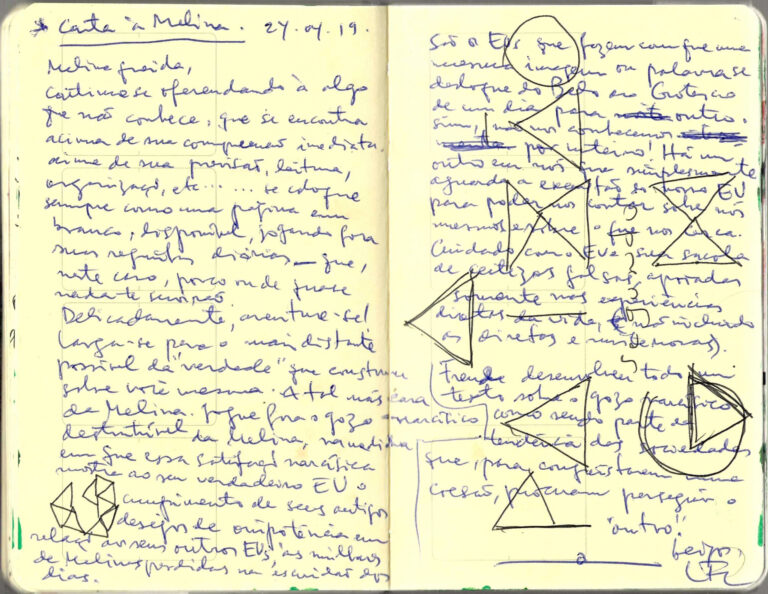 * Carta à Melina. 24.04.19.
Melina querida,
continue se oferendando à algo
que não conhece, que se encontra
acima de sua compreensão imediata.
acima de sua previsão, leitura,
organização, etc... ... se coloque
sempre como uma página em
branco, disponível, jogando fora
suas regrinhas diárias — que,
neste caso, pouco ou de quase
nada te servirão.
Delicadamente, aventure-se!
Larga-se para o mais distante
possível da "verdade" que construiu
sobre você mesma. A tal máscara
da Melina. Jogue fora o gozo narcísico
destrutível da Melina, na medida
em que essa satisfação narcísica
mostra ao seu verdadeiro EU o
cumprimento de seus antigos
desejos de onipotência em
relação aos seus outros EUs, as milhares
de Melinas perdidas na escuridão dos
dias.
São os EUs que fazem com que uma
mesma imagem ou palavra se
desloque do Belo ao Grotesco
de um dia para outro.
Sim, não nos conhecemos
por inteiro! Há um
outro em nós que simplesmente
aguarda a exaustão do nosso EU
para poder nos contar sobre nós
mesmos e sobre o que nos cerca.
Cuidado com o EU e sua sacola
de certezas falsas, apoiadas
somente nas experiências
diretas da vida, (e não incluindo
as diretas e
Freud desenvolveu todo um
texto sobre o gozo narcísico
como sendo parte da
tendência das sociedades
que, para conquistarem uma
coesão, procuram perseguir o
"outro".
beijos,